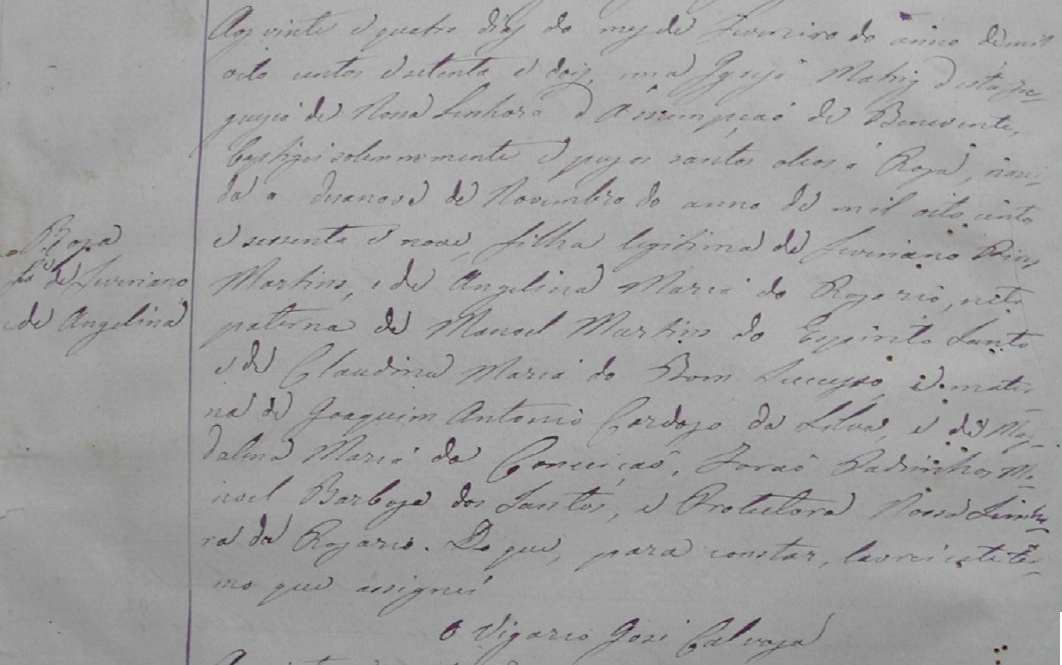 Aos vinte e quatro dias do mes de Fevereiro do anno de mil
oito centos e setenta e dois, nesta Igreja Matriz desta fre-
guezia de Nossa Senhora d'Assumpçaõ de Benevente,
baptizei solemnemente e puz os santos oleos a Roza, nasci-
da a desanove de Novembro do anno de mil oito cento
e sessenta e nove, filha legitima de Severiano Pires
Martins, e de Angelina Maria do Rozario, neta
paterna de Manoel Martins do Espirito Santo
e de Claudina Maria do Bom Successo, e mater-
na de Joaquim Antonio Cardozo da Silva, e de Mag-
dalena Maria da Conceiçaõ. Foraõ Padrinhos Ma-
noel Barboza dos Santos, e Protectora Nossa Senho-
ra do Rozario. Do que, para constar, lavrei este ter-
mo que assignei
O Vigario José
Roza
fa. le. de Severiano
e de Angelina